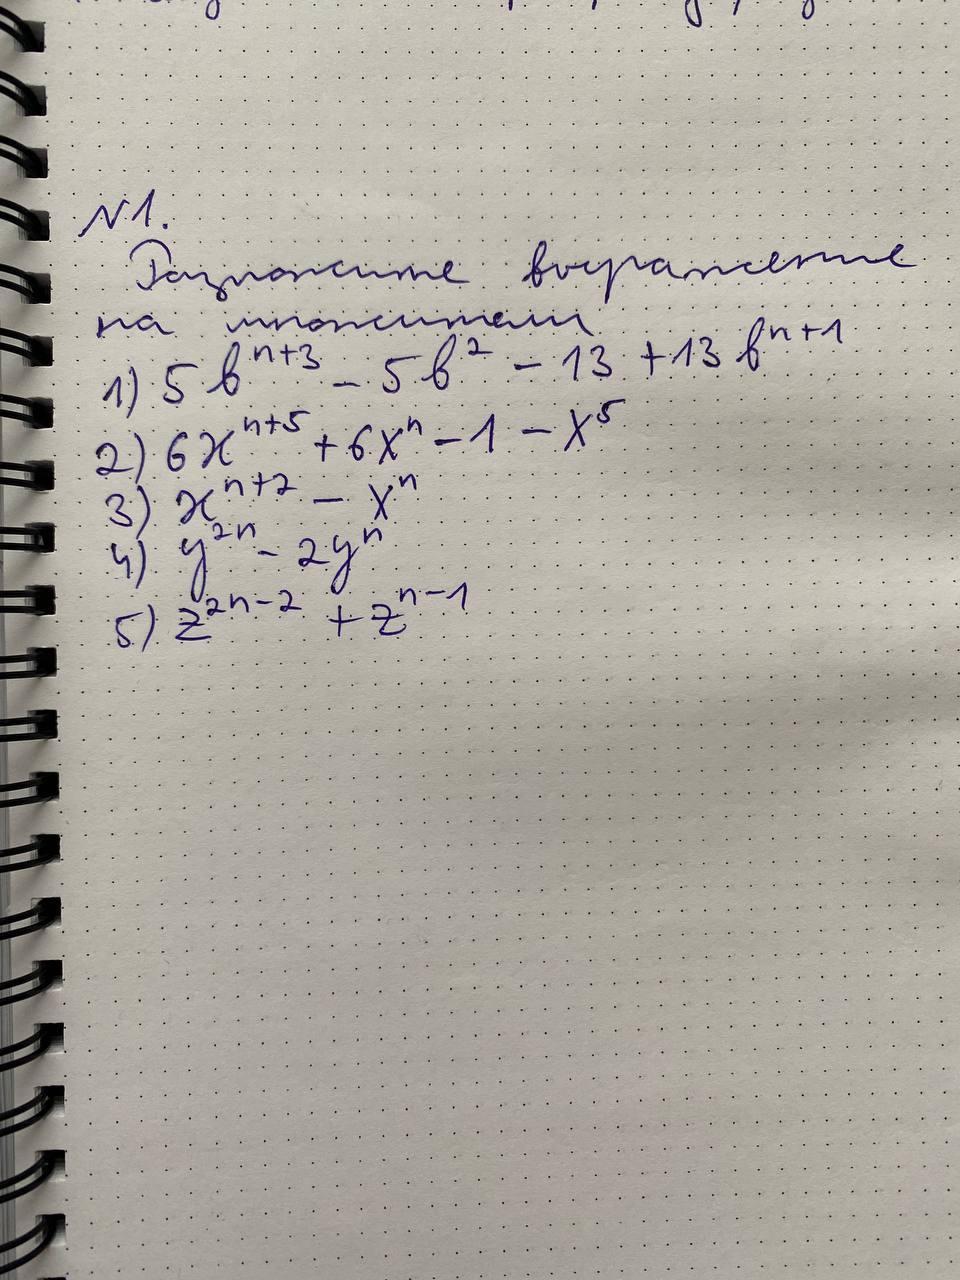 N1.
Разложите выражение
на множители
1) 5b^{n+3} - 5b^2 - 13 + 13b^{n+1}
2) 6x^{n+5} + 6x^n - 1 - x^5
3) x^{n+2} - x^n
4) y^{2n} - 2y^n
5) z^{2n-2} + z^{n-1}